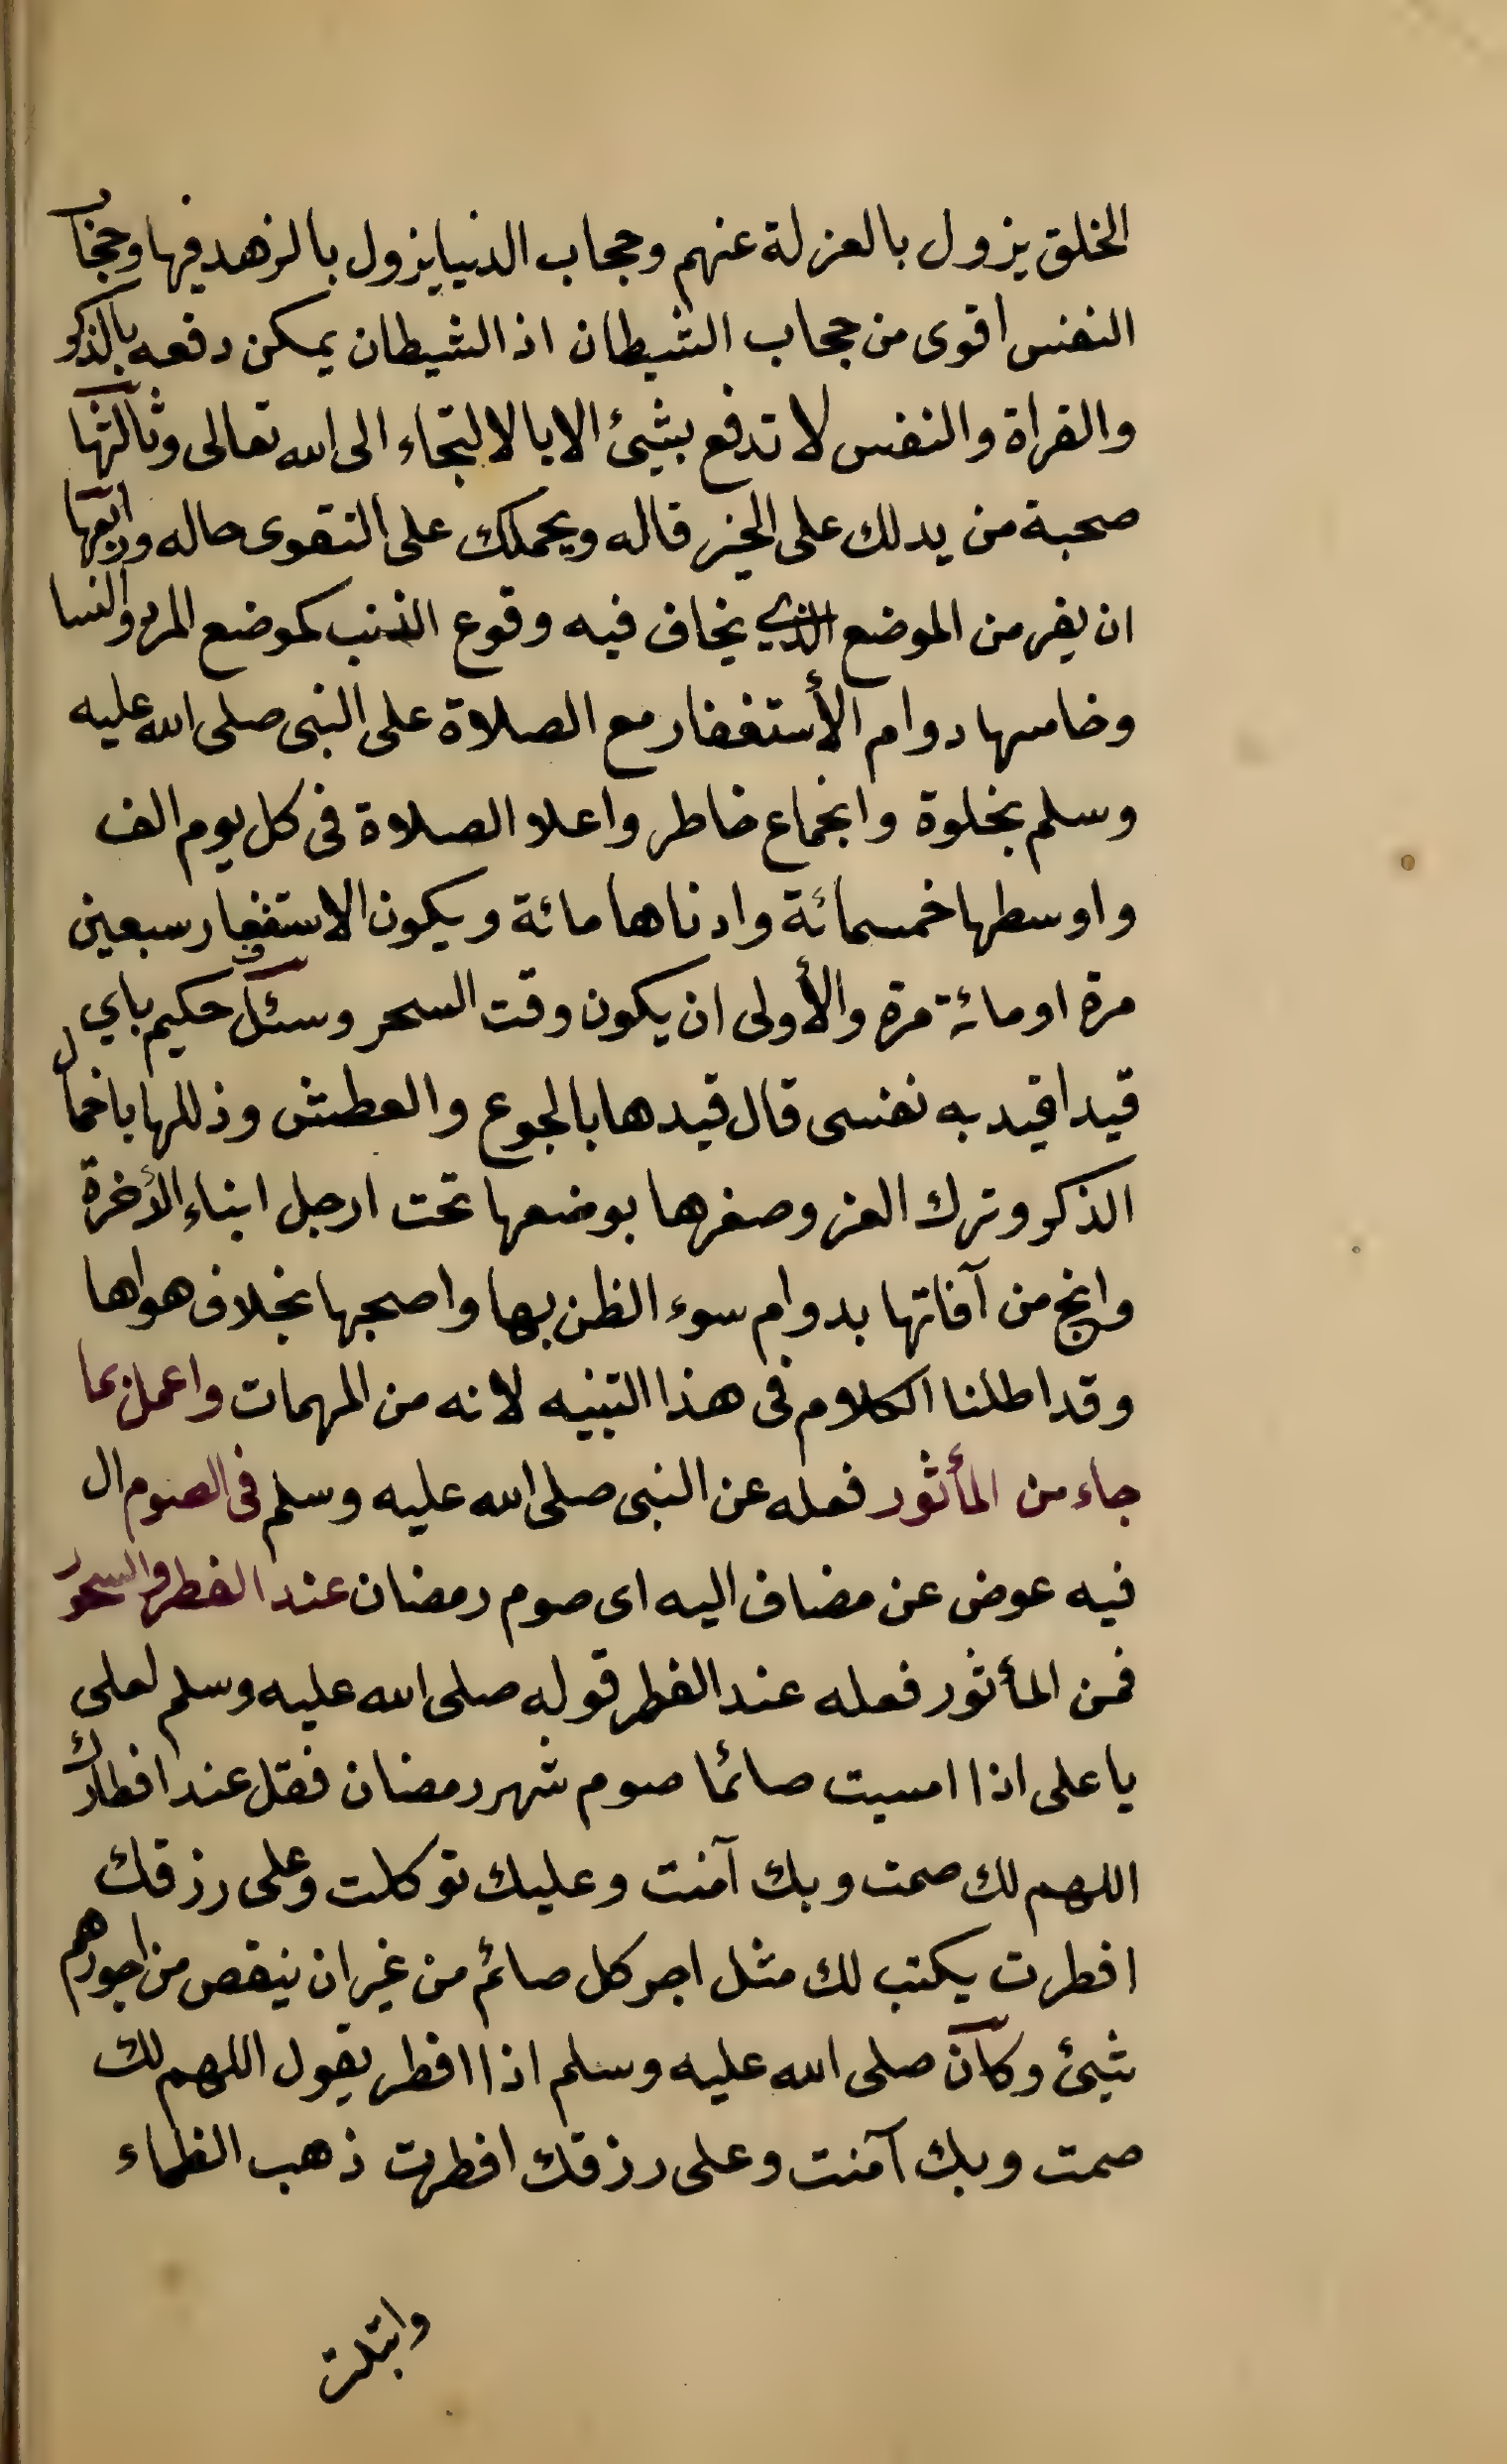 الخلق يزول بالعزلة عنهم وحجاب الدنيا يزول بالزهد فيها وحجاب
النفس اقوى من حجاب الشيطان اذ الشيطان يمكن دفعه بالذكر
والقراة والنفس لا تدفع بشيئ الا بالالتجاء الى الله تعالى وثالثها
صحبة من يدلك على الخير قاله ويحملك على التقوى حاله ورابعها
ان يفر من الموضع الذي يخاف فيه وقوع الذنب كموضع المرد والنسا
وخامسها دوام الأستغفار مع الصلاة على النبى صلى الله عليه
وسلم بخلوة وانجماع خاطر واعلا الصلاة فى كل يوم الف
واوسطها خمسمائة وادناها مائة ويكون الاستغفار سبعين
مرة او مائة مرة والأولى ان يكون وقت السحر وسئل حكيم باي
قيد اقيد به نفسى قال قيدها بالجوع والعطش وذللها باخمال
الذكر وترك العز وصغرها بوضعها تحت ارجل ابناء الأخرة
وانج من آفاتها بدوام سوء الظن بها واصحبها بخلاف هواها
وقد اطلنا الكلام فى هذا التبنيه لانه من المهمات واعمل بما
جاء من المأثور فعله عن النبى صلى الله عليه وسلم فى الصوم ال
فيه عوض عن مضاف اليه اى صوم رمضان عند الفطر والسحور
فمن المأثور فعله عند الفطر قوله صلى الله عليه وسلم لعلى
يا على اذا امسيت صائما صوم شهر رمضان فقل عند افطارك
اللهم لك صمت وبك آمنت وعليك توكلت وعلى رزقك
افطرت يكتب لك مثل اجر كل صائم من غير ان ينقص من اجورهم
شيئ وكان صلى الله عليه وسلم اذا افطر يقول اللهم لك
صمت وبك آمنت وعلى رزقك افطرت ذهب الظماء
وابتلت